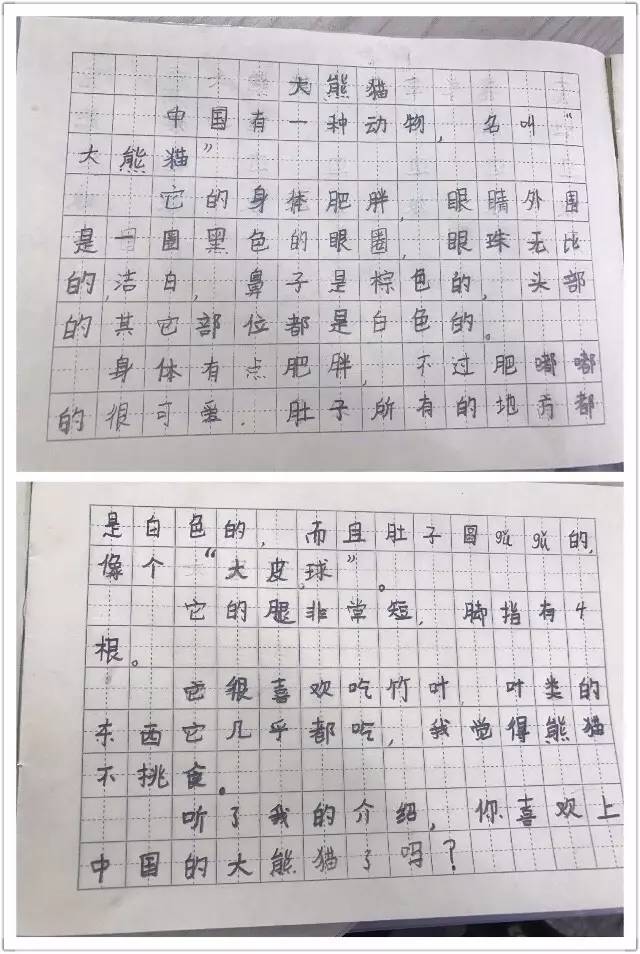 大熊猫
中国有一种动物，名叫“
大熊猫”
它的身体肥胖，眼睛外围
是一圈黑色的眼圈，眼珠无比
的，洁白，鼻子是棕色的，头部
的其它部位都是白色的。
身体有点肥胖，不过肥嘟嘟
的很可爱．肚子所有的地方都
是白色的，而且肚子圆gǔ gǔ的，
像个“大皮球”。
它的腿非常短，脚指有4
根。
它很喜欢吃竹叶，叶类的
东西它几乎都吃，我觉得熊猫
不挑食。
听了我的介绍，你喜欢上
中国的大熊猫了吗？